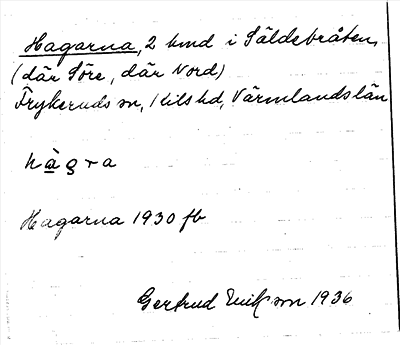 Hagarna, 2 hmd i Säldebråten,
(där Söre, där Nord)
Frykeruds sn, Kils hd, Värmlands län
hàgra
Hagarna 1930 fb
Gertrud Erikson 1936